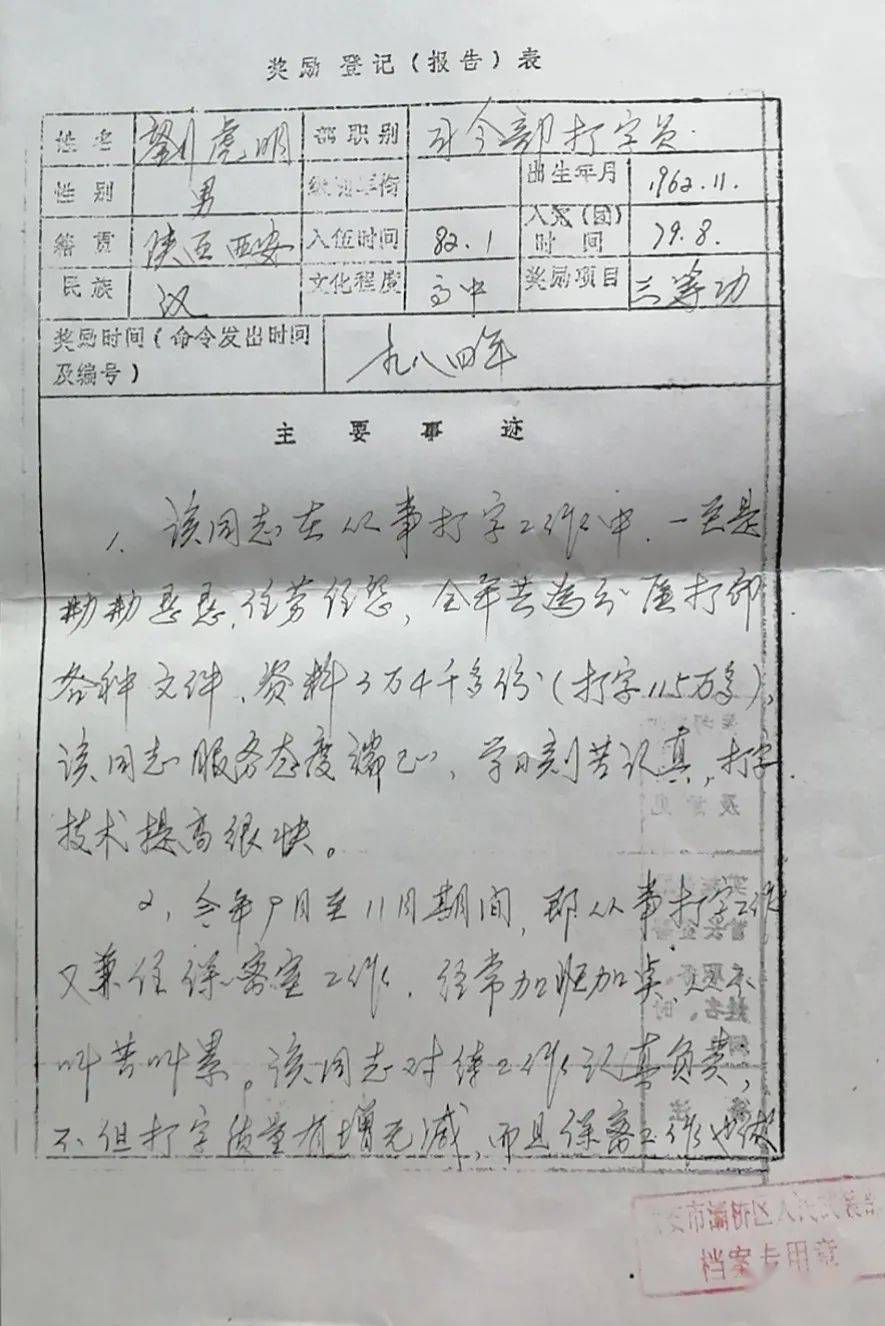 奖励登记(报告)表
姓名 劉虎明 部职别 司令部打字员
性别 男 级别军衔 出生年月 1962.11.
籍贯 陕西西安 入伍时间 82.1 入党(团)时间 79.8.
民族 汉 文化程度 高中 奖励项目 三等功
奖励时间(命令发出时间
及编号) 一九八四年
主要事迹
1、该同志在从事打字工作中,一至是
勤勤恳恳,任劳任怨,全年共为打印
各种文件、资料3万4千多份(打字115万多),
该同志服务态度端正,学习刻苦认真,打字
技术提高很快。
2、今年9月至11月期间,即从事打字工作
又兼任保密室工作,经常加班加点,从不
叫苦叫累。该同志对待工作认真负责,
不但打字质量有增无减,而且保密工作也做
安市灞桥区人民武装部
档案专用章